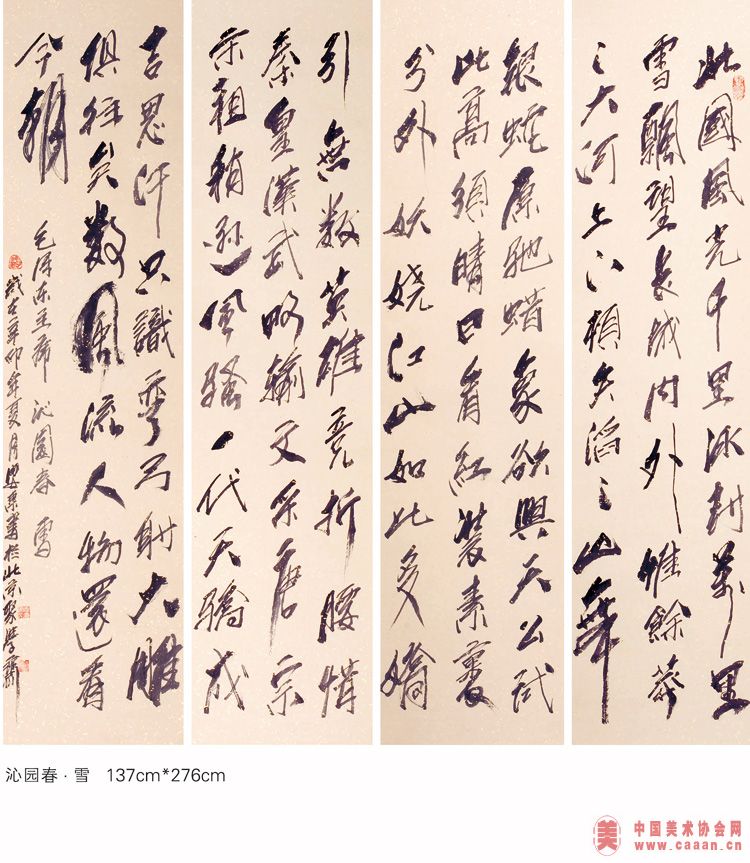 北國風光千里冰封萬里
雪飄望長城內外惟餘莽
〻大河上下頓失滔〻山舞
銀蛇原馳蜡象欲與天公試
比高須晴日看紅裝素裹
分外妖嬈江山如此多嬌
引無數英雄競折腰惜
秦皇漢武略輸文采唐宗
宋祖稍遜風騷一代天驕成
吉思汗只識彎弓射大雕
俱往矣數風流人物還看
今朝
毛澤東主席 沁園春 雪
歲在辛卯年夏月 於北京
沁园春·雪 137cm*276cm
美 中国美术协会网
www.caaan.cn